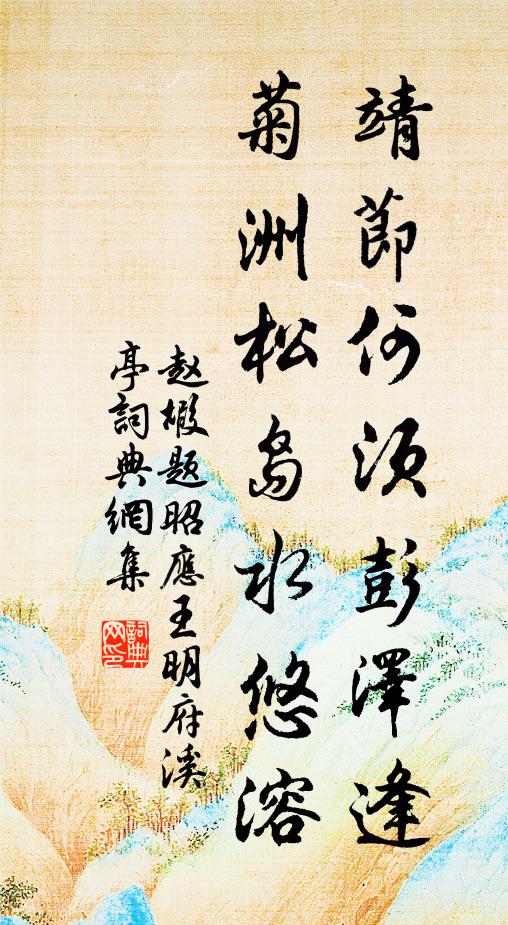 靖節何須彭澤逢
菊洲松島水悠溶
赵嘏题昭應王明府溪
亭詞典網集
詞典
网印